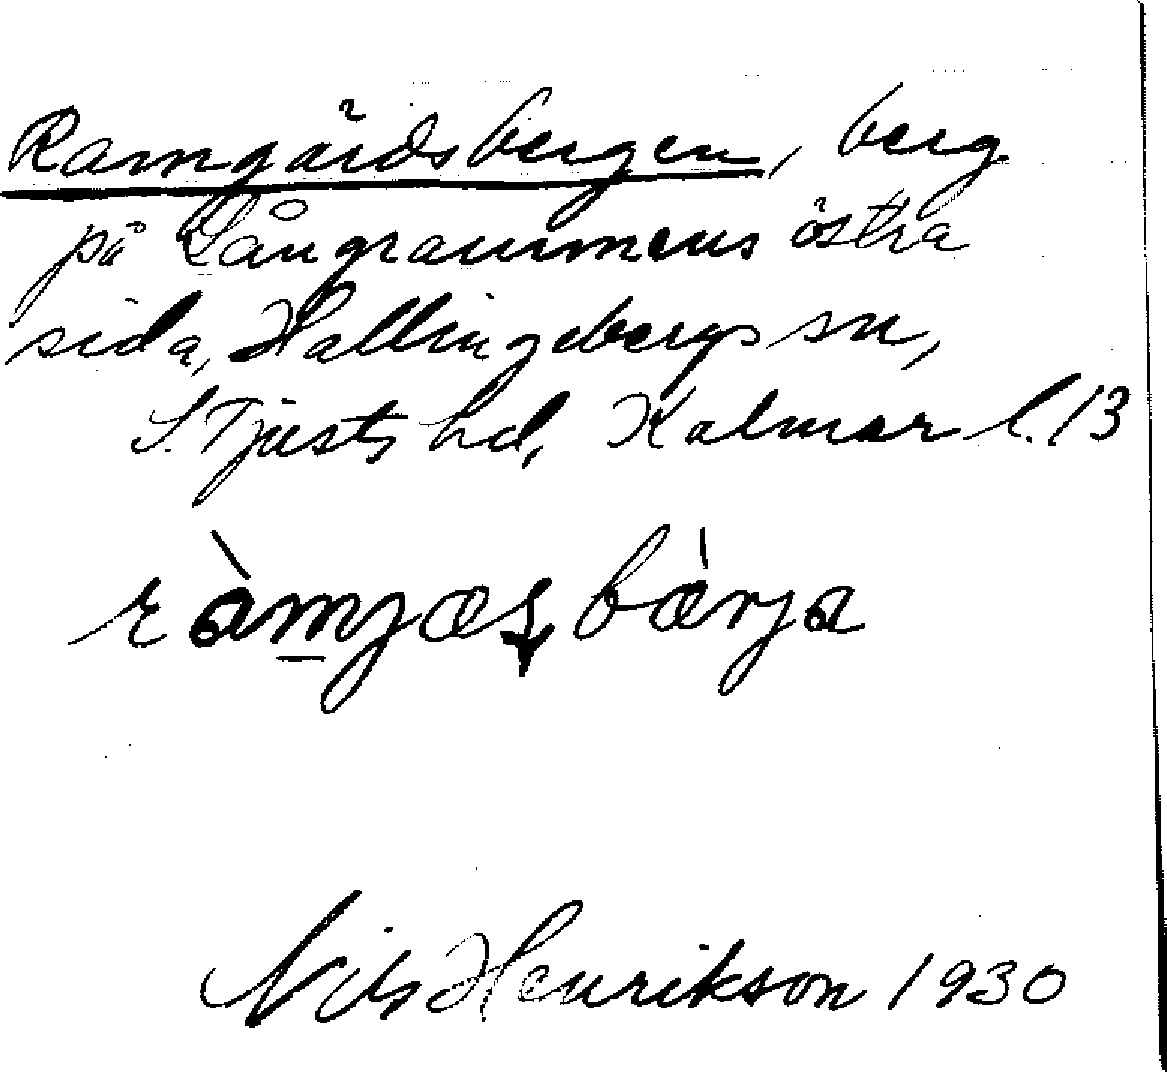 Ramgärdsbergen, berg
på Långrammens östra
sida, Hallingebergs sn,
S. Tjusts hd, Kalmar l. 13
ràmjæṣbærja
Nils Henrikson 1930